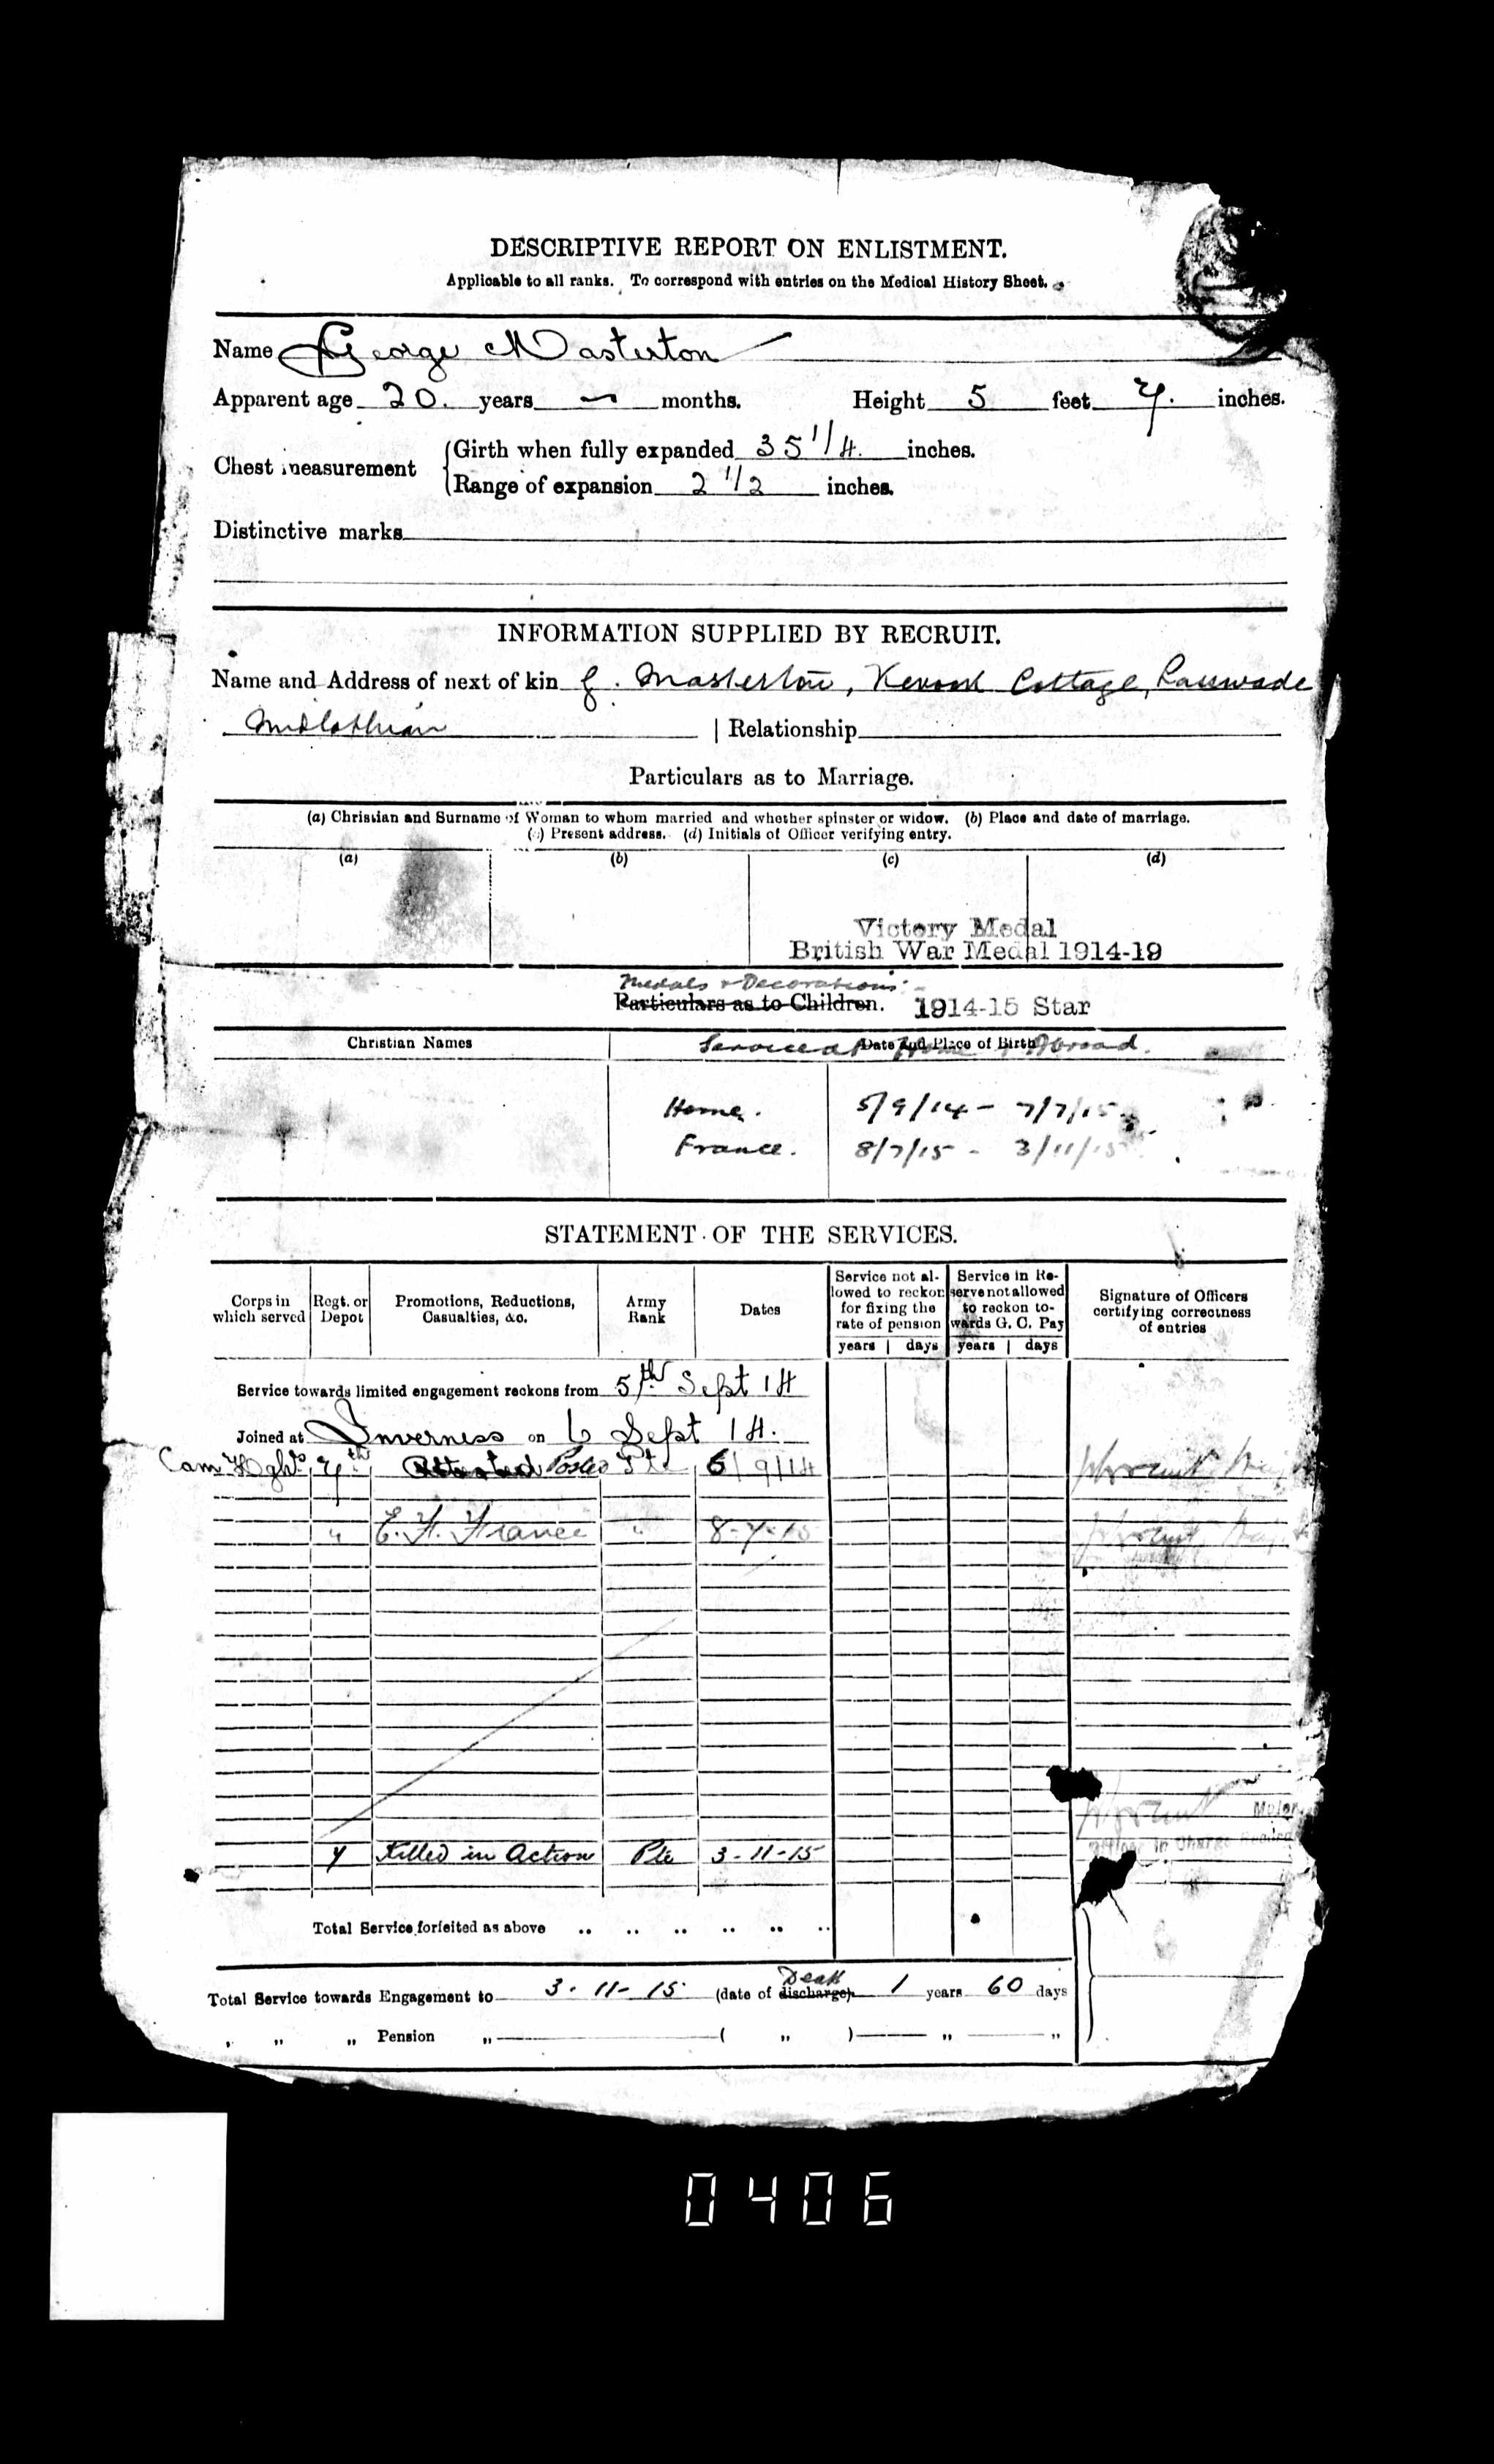 DESCRIPTIVE REPORT ON ENLISTMENT.
Applicable to all ranks. To correspond with entries on the Medical History Sheet.
Name George Masterton
Apparent age 20. years — months. Height 5 feet 7. inches.
Chest measurement
Girth when fully expanded 35 1/4. inches.
Range of expansion 2 1/2 inches.
Distinctive marks
INFORMATION SUPPLIED BY RECRUIT.
Name and Address of next of kin J. Masterton, Kevock Cottage, Lasswade
Midlothian | Relationship
Particulars as to Marriage.
(a) Christian and Surname of Woman to whom married and whether spinster or widow. (b) Place and date of marriage.
(c) Present address. (d) Initials of Officer verifying entry.
(a) (b) (c) (d)
Victory Medal
British War Medal 1914-19
Medals & Decorations
Particulars as to Children. 1914-15 Star
Christian Names Date and Place of Birth
Service at Home Abroad.
Home. 5/9/14 - 7/7/15
France. 8/7/15 - 3/11/15
STATEMENT OF THE SERVICES.
Corps in which served
Regt. or Depot
Promotions, Reductions, Casualties, &c.
Army Rank
Dates
Service not allowed to reckon for fixing the rate of pension
Service in Reserve not allowed to reckon towards G. C. Pay
Signature of Officers certifying correctness of entries
years | days years | days
Service towards limited engagement reckons from 5th Sept 14
Joined at Inverness on 6 Sept 14.
Cam Highrs 7th Attested Posted Pte 6/9/14
" E. F. France " 8-7-15
7 Killed in Action Pte 3-11-15
Total Service forfeited as above .. .. .. .. .. ..
Total Service towards Engagement to 3-11-15 (date of discharge) Death 1 years 60 days
" " " Pension " ( " ) " "
0406